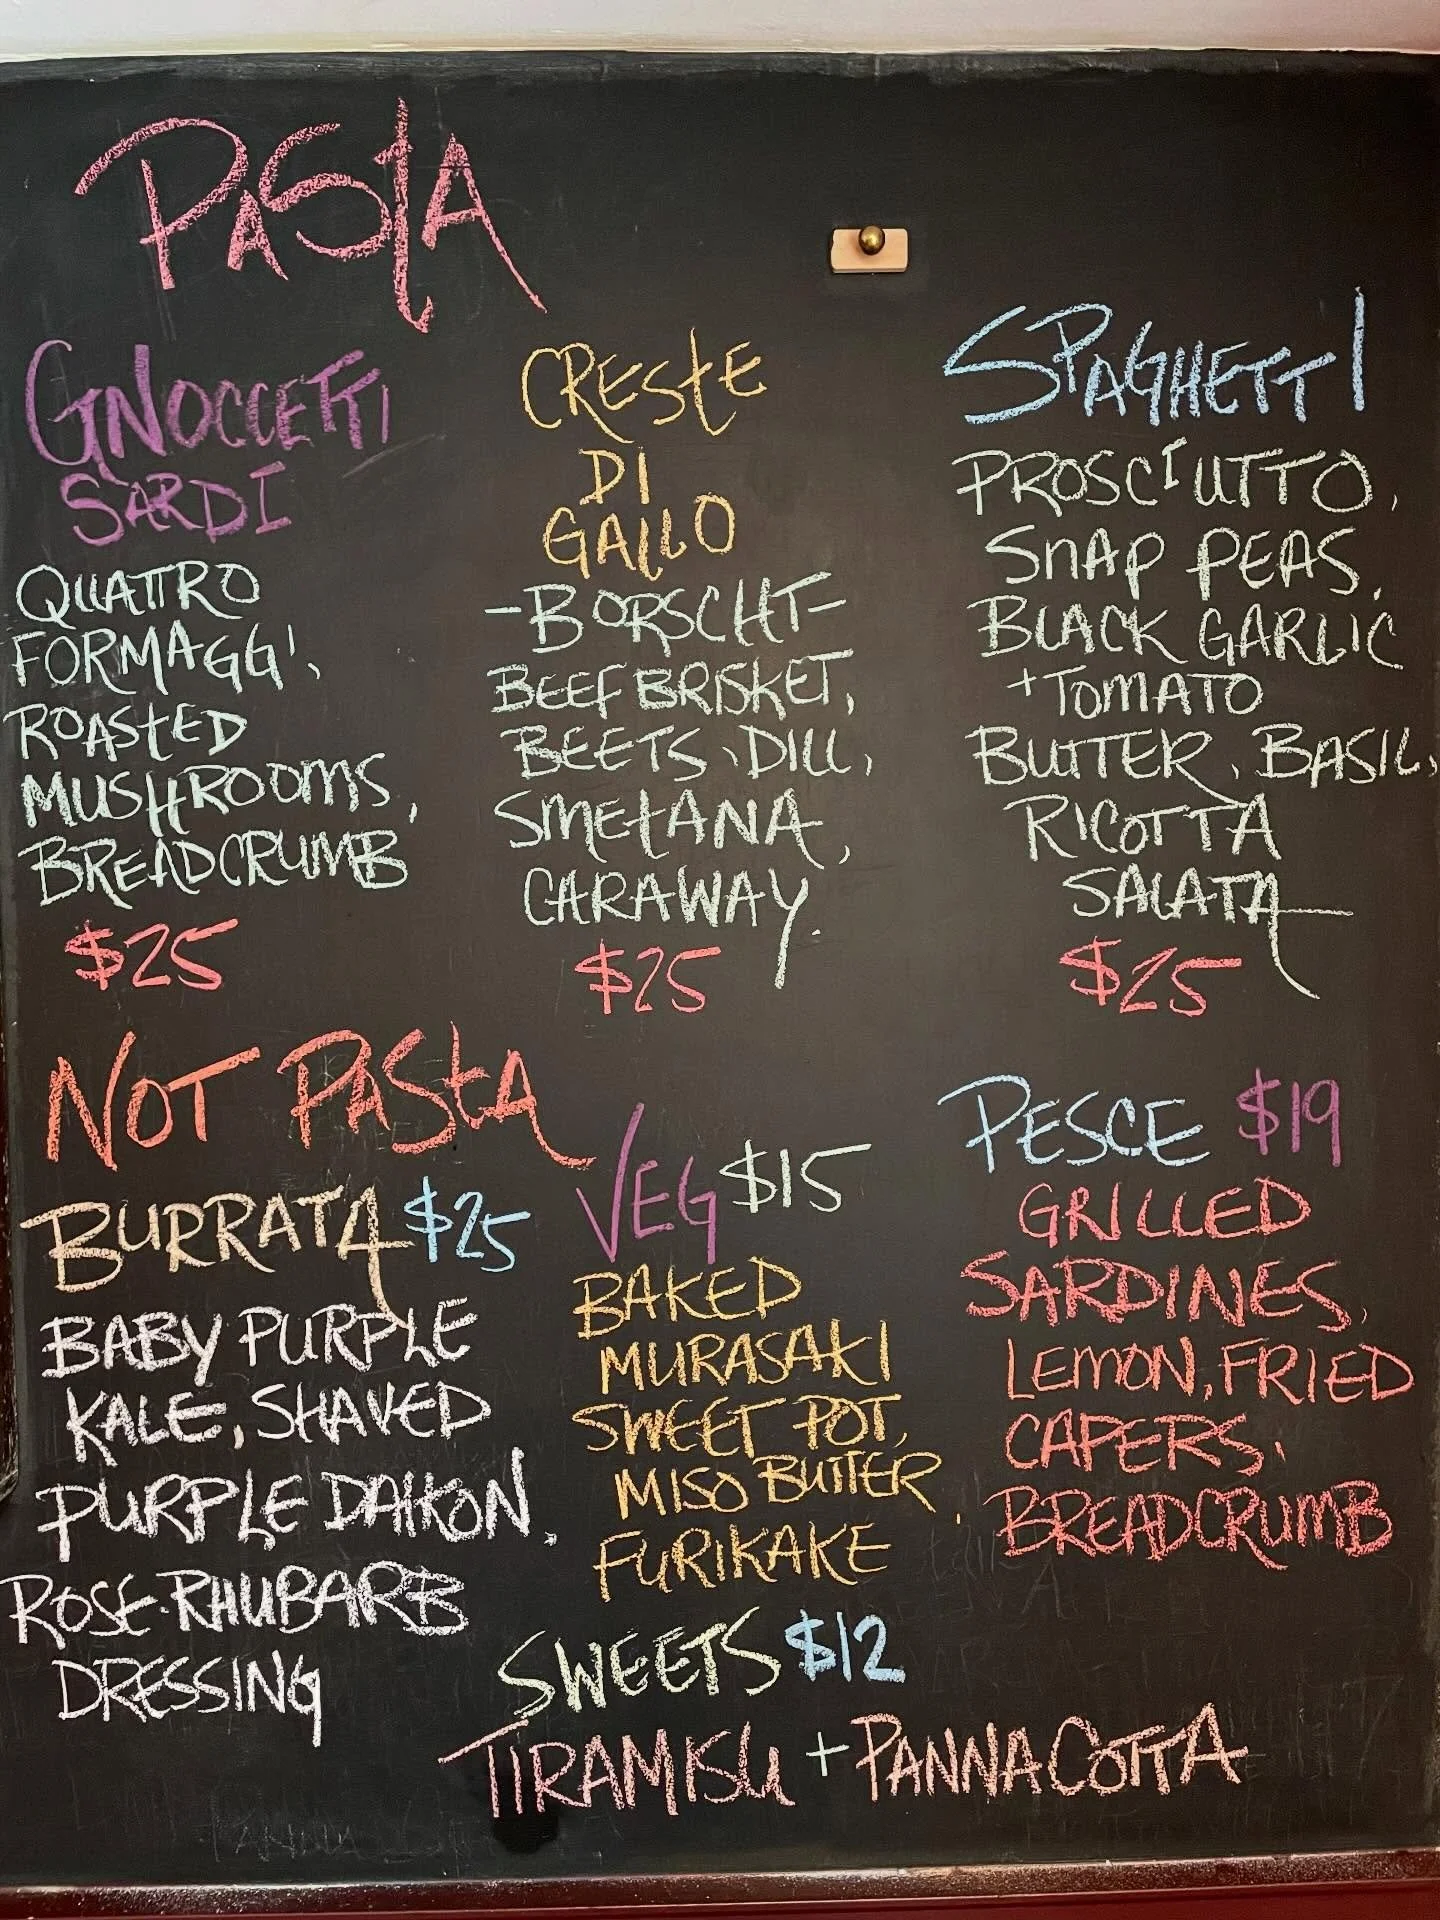 PASTA
GNOCCETTI
SARDI
QUATTRO
FORMAGGI,
ROASTED
MUSHROOMS,
BREADCRUMB
$25
CRESTE
DI
GALLO
-BORSCHT-
BEEF BRISKET,
BEETS, DILL,
SMETANA,
CARAWAY.
$25
SPAGHETTI
PROSCIUTTO,
SNAP PEAS,
BLACK GARLIC
+TOMATO
BUTTER, BASIL,
RICOTTA
SALATA
$25
NOT PASTA
BURRATA $25
BABY PURPLE
KALE, SHAVED
PURPLE DAIKON,
ROSE-RHUBARB
DRESSING
VEG $15
BAKED
MURASAKI
SWEET POT,
MISO BUTTER,
FURIKAKE
PESCE $19
GRILLED
SARDINES,
LEMON, FRIED
CAPERS,
BREADCRUMB
SWEETS $12
TIRAMISU + PANNA COTTA